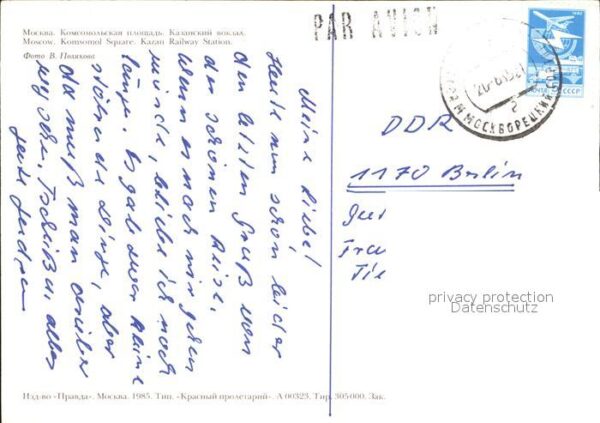 Москва. Комсомольская площадь. Казанский вокзал.
Moscow. Komsomol Square. Kazan Railway Station.
Фото В. Полякова
PAR AVION
ПОЧТА СССР
МОСКВОРЕЦКИЙ
Meine Liebe!
Heute nun schon leider
den letzten Gruß von
der schönen Reise.
Wenn es nach mir gehen
würde, bliebe ich noch
lange. Es gab zwar kleine
störende Dinge, aber
das muß man
Tschüß, alles
Gute
DDR
1170 Berlin
privacy protection
Datenschutz
Изд-во «Правда». Москва. 1985. Тип. «Красный пролетарий». А 00323. Тир. 305000. Зак.